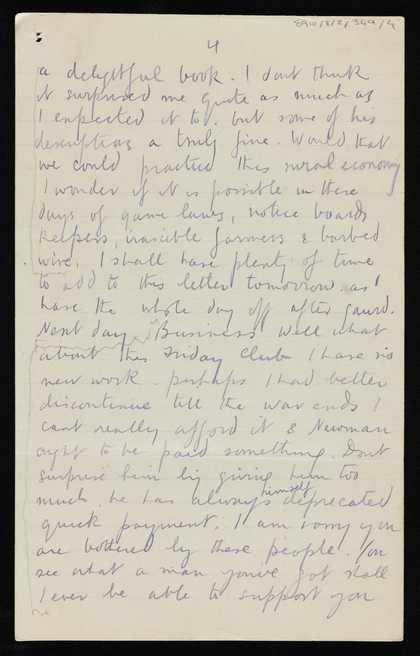 8910/8/2/349/4
4
a delightful book. I dont think
it surprised me quite as much as
I expected it to. but some of his
descriptions a truly fine. Would that
we could practice this rural economy
I wonder if it is possible in these
days of game laws, notice boards
keepers, irascible farmers & barbed
wire. I shall have plenty of time
to add to this letter tomorrow as I
have the whole day off after guard.
Next day. "Business" Well what
about this Friday Club I have no
new work perhaps I had better
discontinue till the war ends I
cant really afford it & Newman
ought to be paid something. Dont
surprise him by giving him too
much. he has always himself deprecated
quick payment. I am sorry you
are bothered by these people. You
see what a man youve got shall
I ever be able to support you